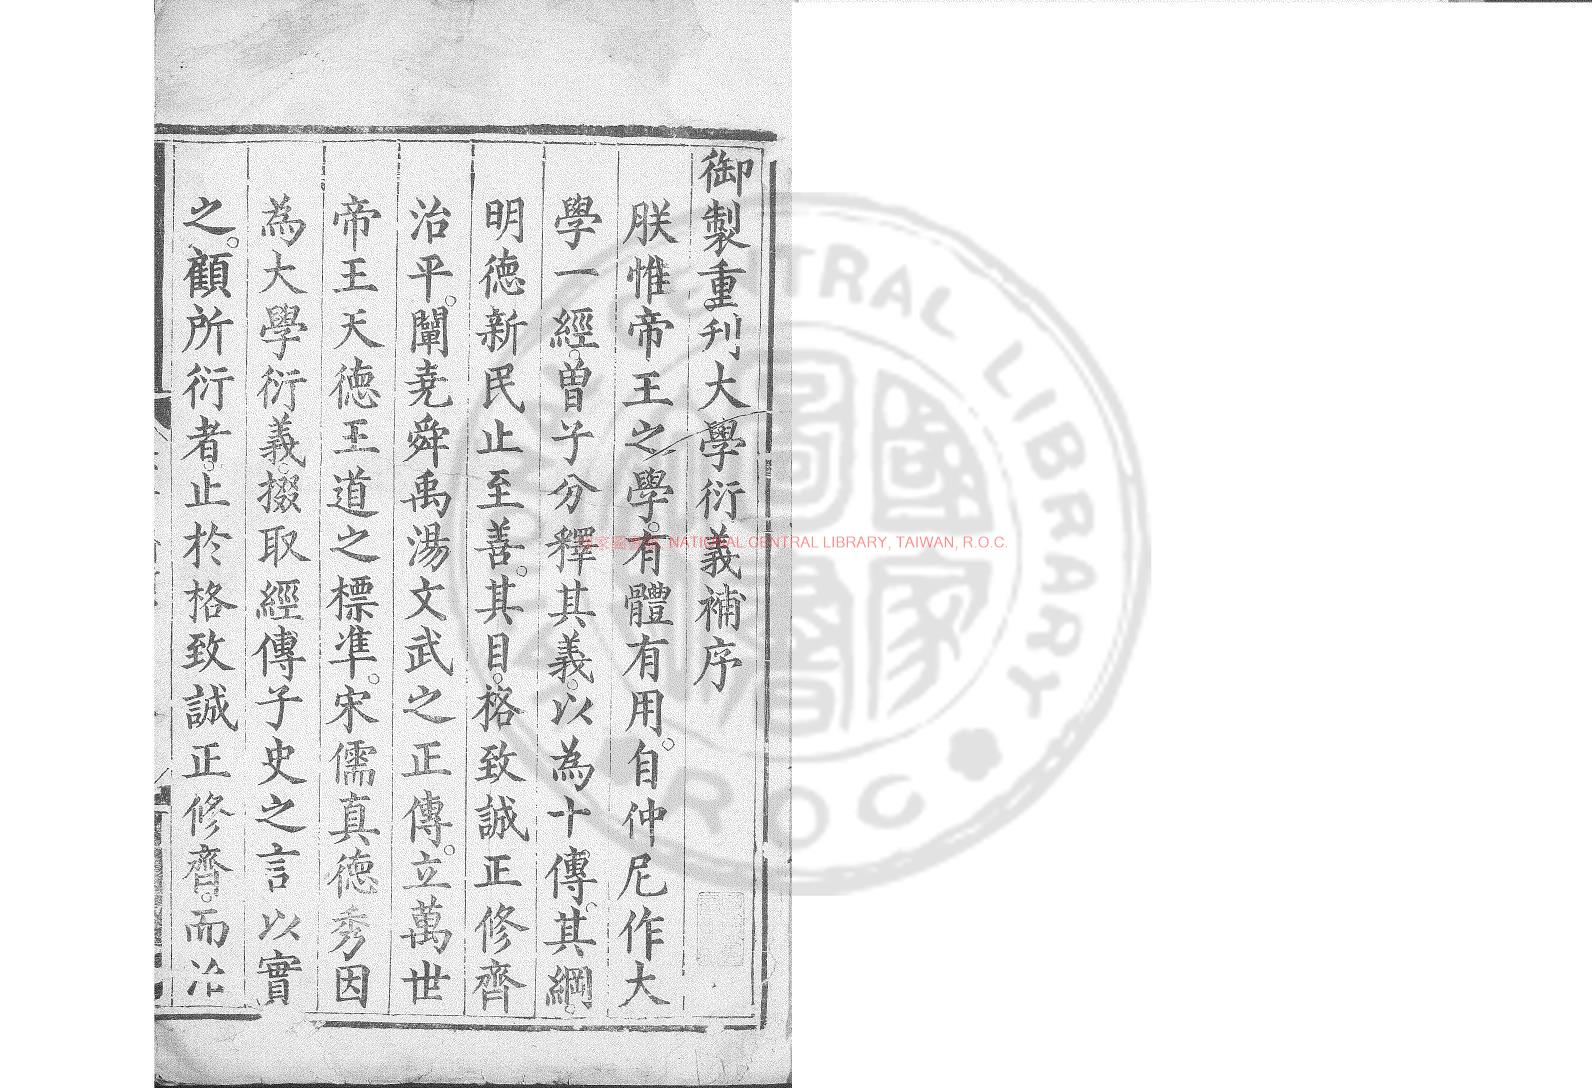 御製重刋大學衍義補序
朕惟帝王之學。有體有用。自仲尼作大
學一經。曽子分釋其義。以為十傳。其綱。
明德新民止至善。其目。格致誠正修齊
治平。闡尭舜禹湯文武之正傳。立萬世
帝王天德王道之標準。宋儒真德秀因
為大學衍義。掇取經傳子史之言以實
之。顧所衍者。止於格致誠正修齊。而治
NATIONAL CENTRAL LIBRARY, TAIWAN, R.O.C.
CENTRAL LIBRARY
R.O.C